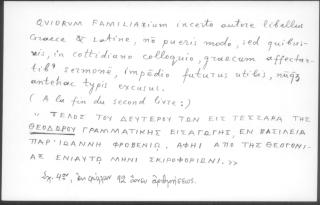 QVIDRVM FAMILIARium incerto autore libellus
Graece & Latine, nõ pueris modo, sed quibus-
vis, in cottidiano colloquio, graecum affectan-
tibꝰ sermonē, impēdio futurus utilis, nūqꝫ
antehac typis excusus.
(A la fin du second livre:)
" ΤΕΛΟΣ ΤΟΥ ΔΕΥΤΕΡΟΥ ΤΩΝ ΕΙΣ ΤΕΣΣΑΡΑ ΤΗΣ
ΘΕΟΔΩΡΟΥ ΓΡΑΜΜΑΤΙΚΗΣ ΕΙΣΑΓΩΓΗΣ, ΕΝ ΒΑΣΙΛΕΙΑ
ΠΑΡ' ΙΩΑΝΝΗ ΦΡΟΒΕΝΙΩ, ΑΦΗΙ ΑΠΟ ΤΗΣ ΘΕΟΓΟΝΙ-
ΑΣ ΕΝΙΑΥΤΩ ΜΗΝΙ ΣΚΙΡΟΦΟΡΙΩΝΙ. »
Σχ. 4ον, 92 ἄνευ ἀριθμήσεως.